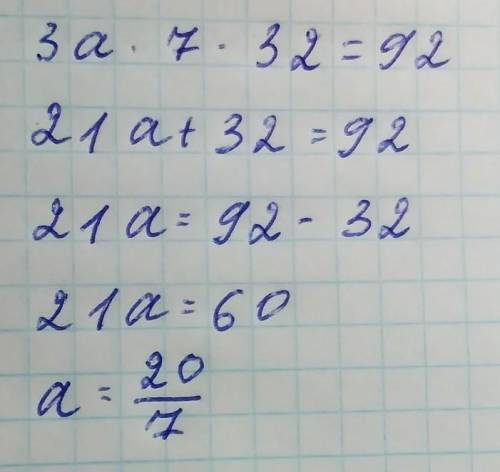 3a · 7 · 32 = 92
21a + 32 = 92
21a = 92 - 32
21a = 60
a = 20/7